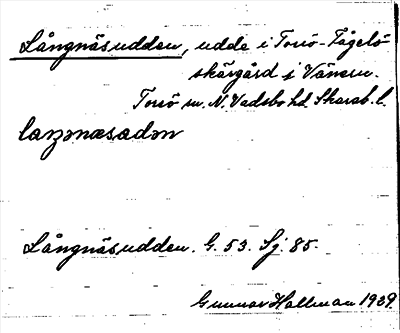 Långnäsudden, udde i Torsö-Fågelö
skärgård i Vänern.
Torsö sn. N. Vadsbo hd. Skarab. l.
laŋnæsadən
Långnäsudden. G. 53. Sj. 85.
Gunnar Hallman 1939.